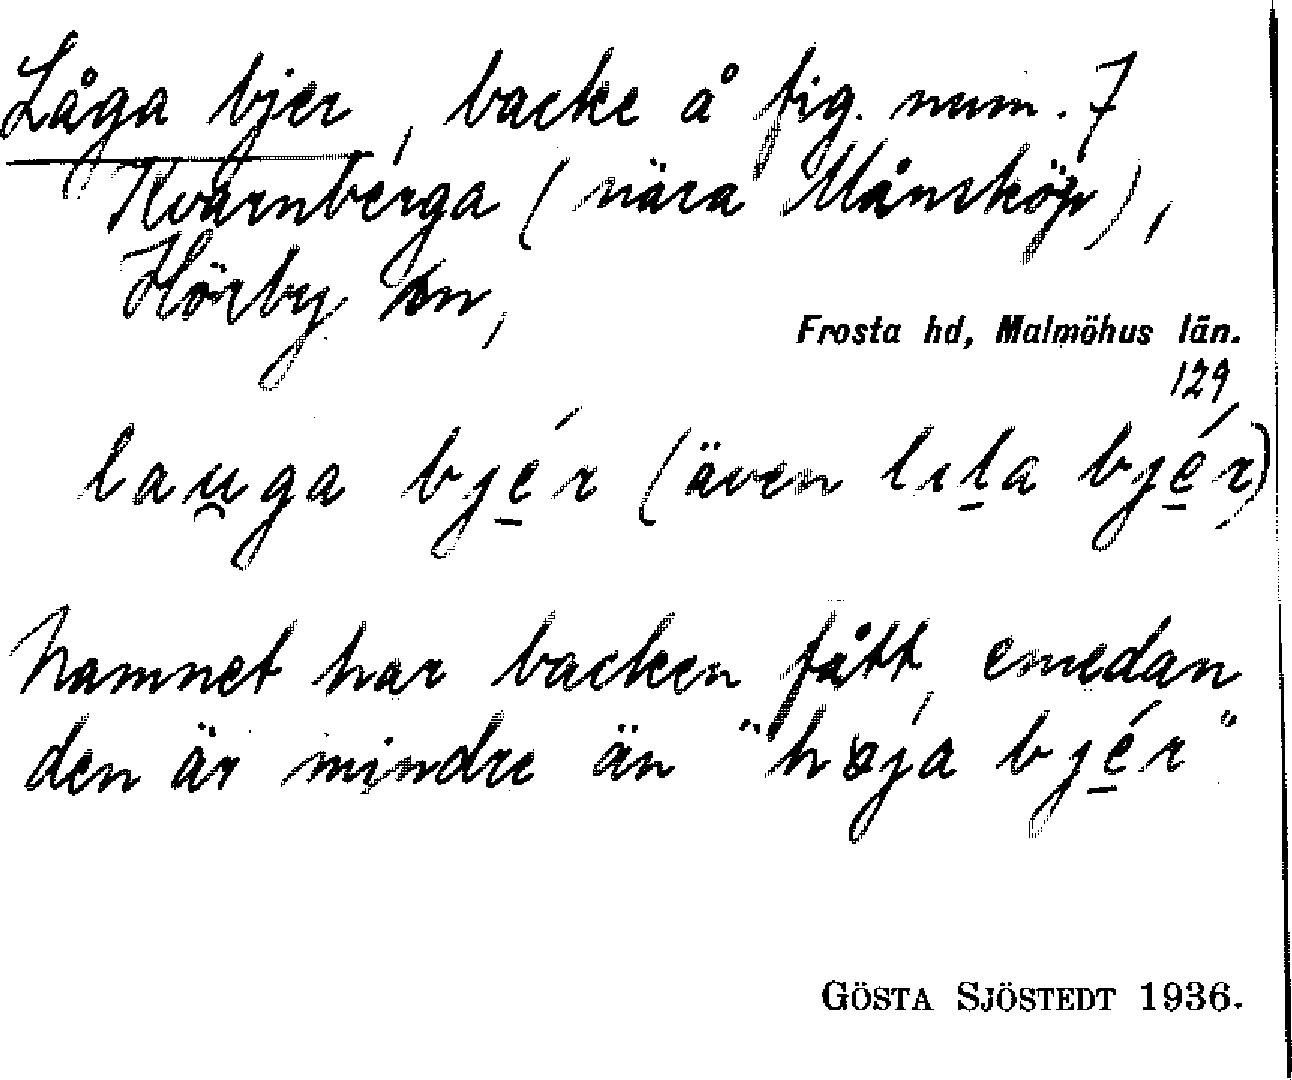 Låga bjer, backe å fig. num. 7
Kvarnberga (nära Månsköp),
Hörby sn,
Frosta hd, Malmöhus län.
129
lau̯ga bjé̱r (även lıl̠a bjé̱r)
Namnet har backen fått, emedan
den är mindre än "høja bjé̱r"
GÖSTA SJÖSTEDT 1936.